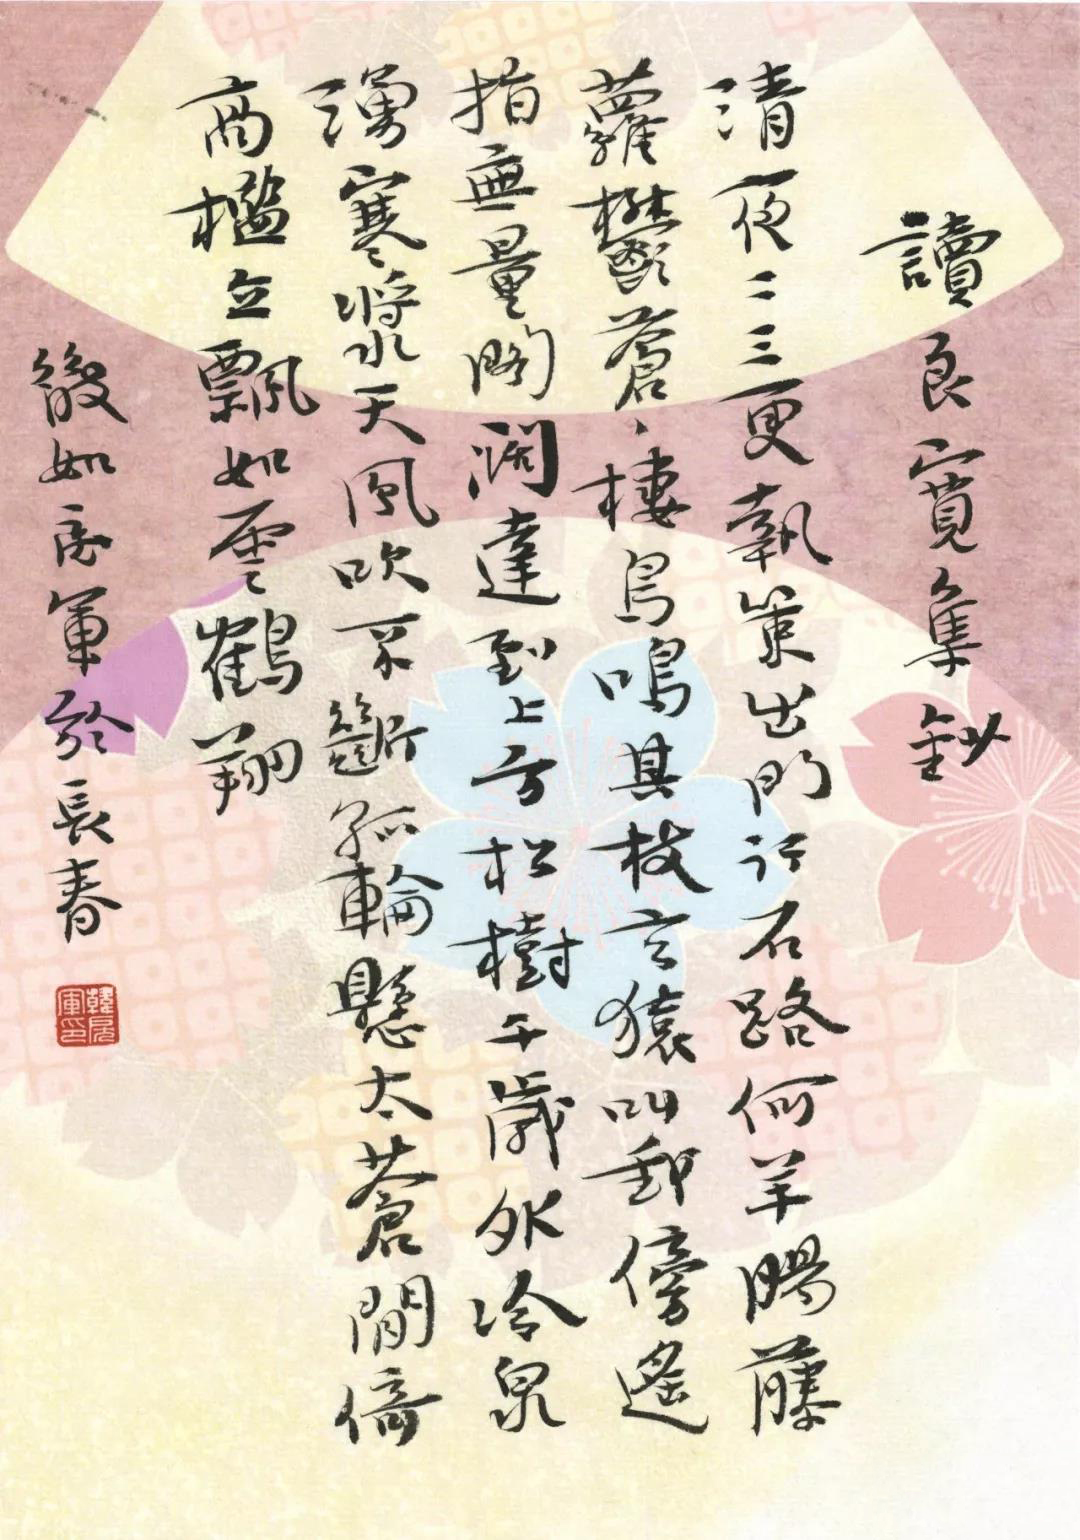 讀良寬集鈔
清夜二三更執策出門行石路何羊腸藤
蘿鬱蒼〻棲鳥鳴其枝玄猿叫傍遙
指無量閣闊達到上方松樹千歲外冷泉
湧寒漿天風吹不斷孤輪懸太蒼間倚
高檻立飄如雲鶴翔
如居軍於長春
韓居軍印